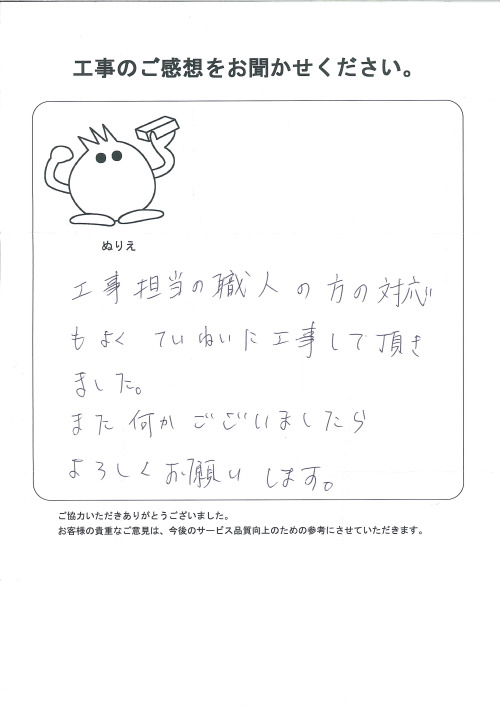 工事のご感想をお聞かせください。
ぬりえ
工事担当の職人の方の対応
もよく ていねいに工事して頂き
ました。
また何かございましたら
よろしくお願いします。
ご協力いただきありがとうございました。
お客様の貴重なご意見は、今後のサービス品質向上のための参考にさせていただきます。